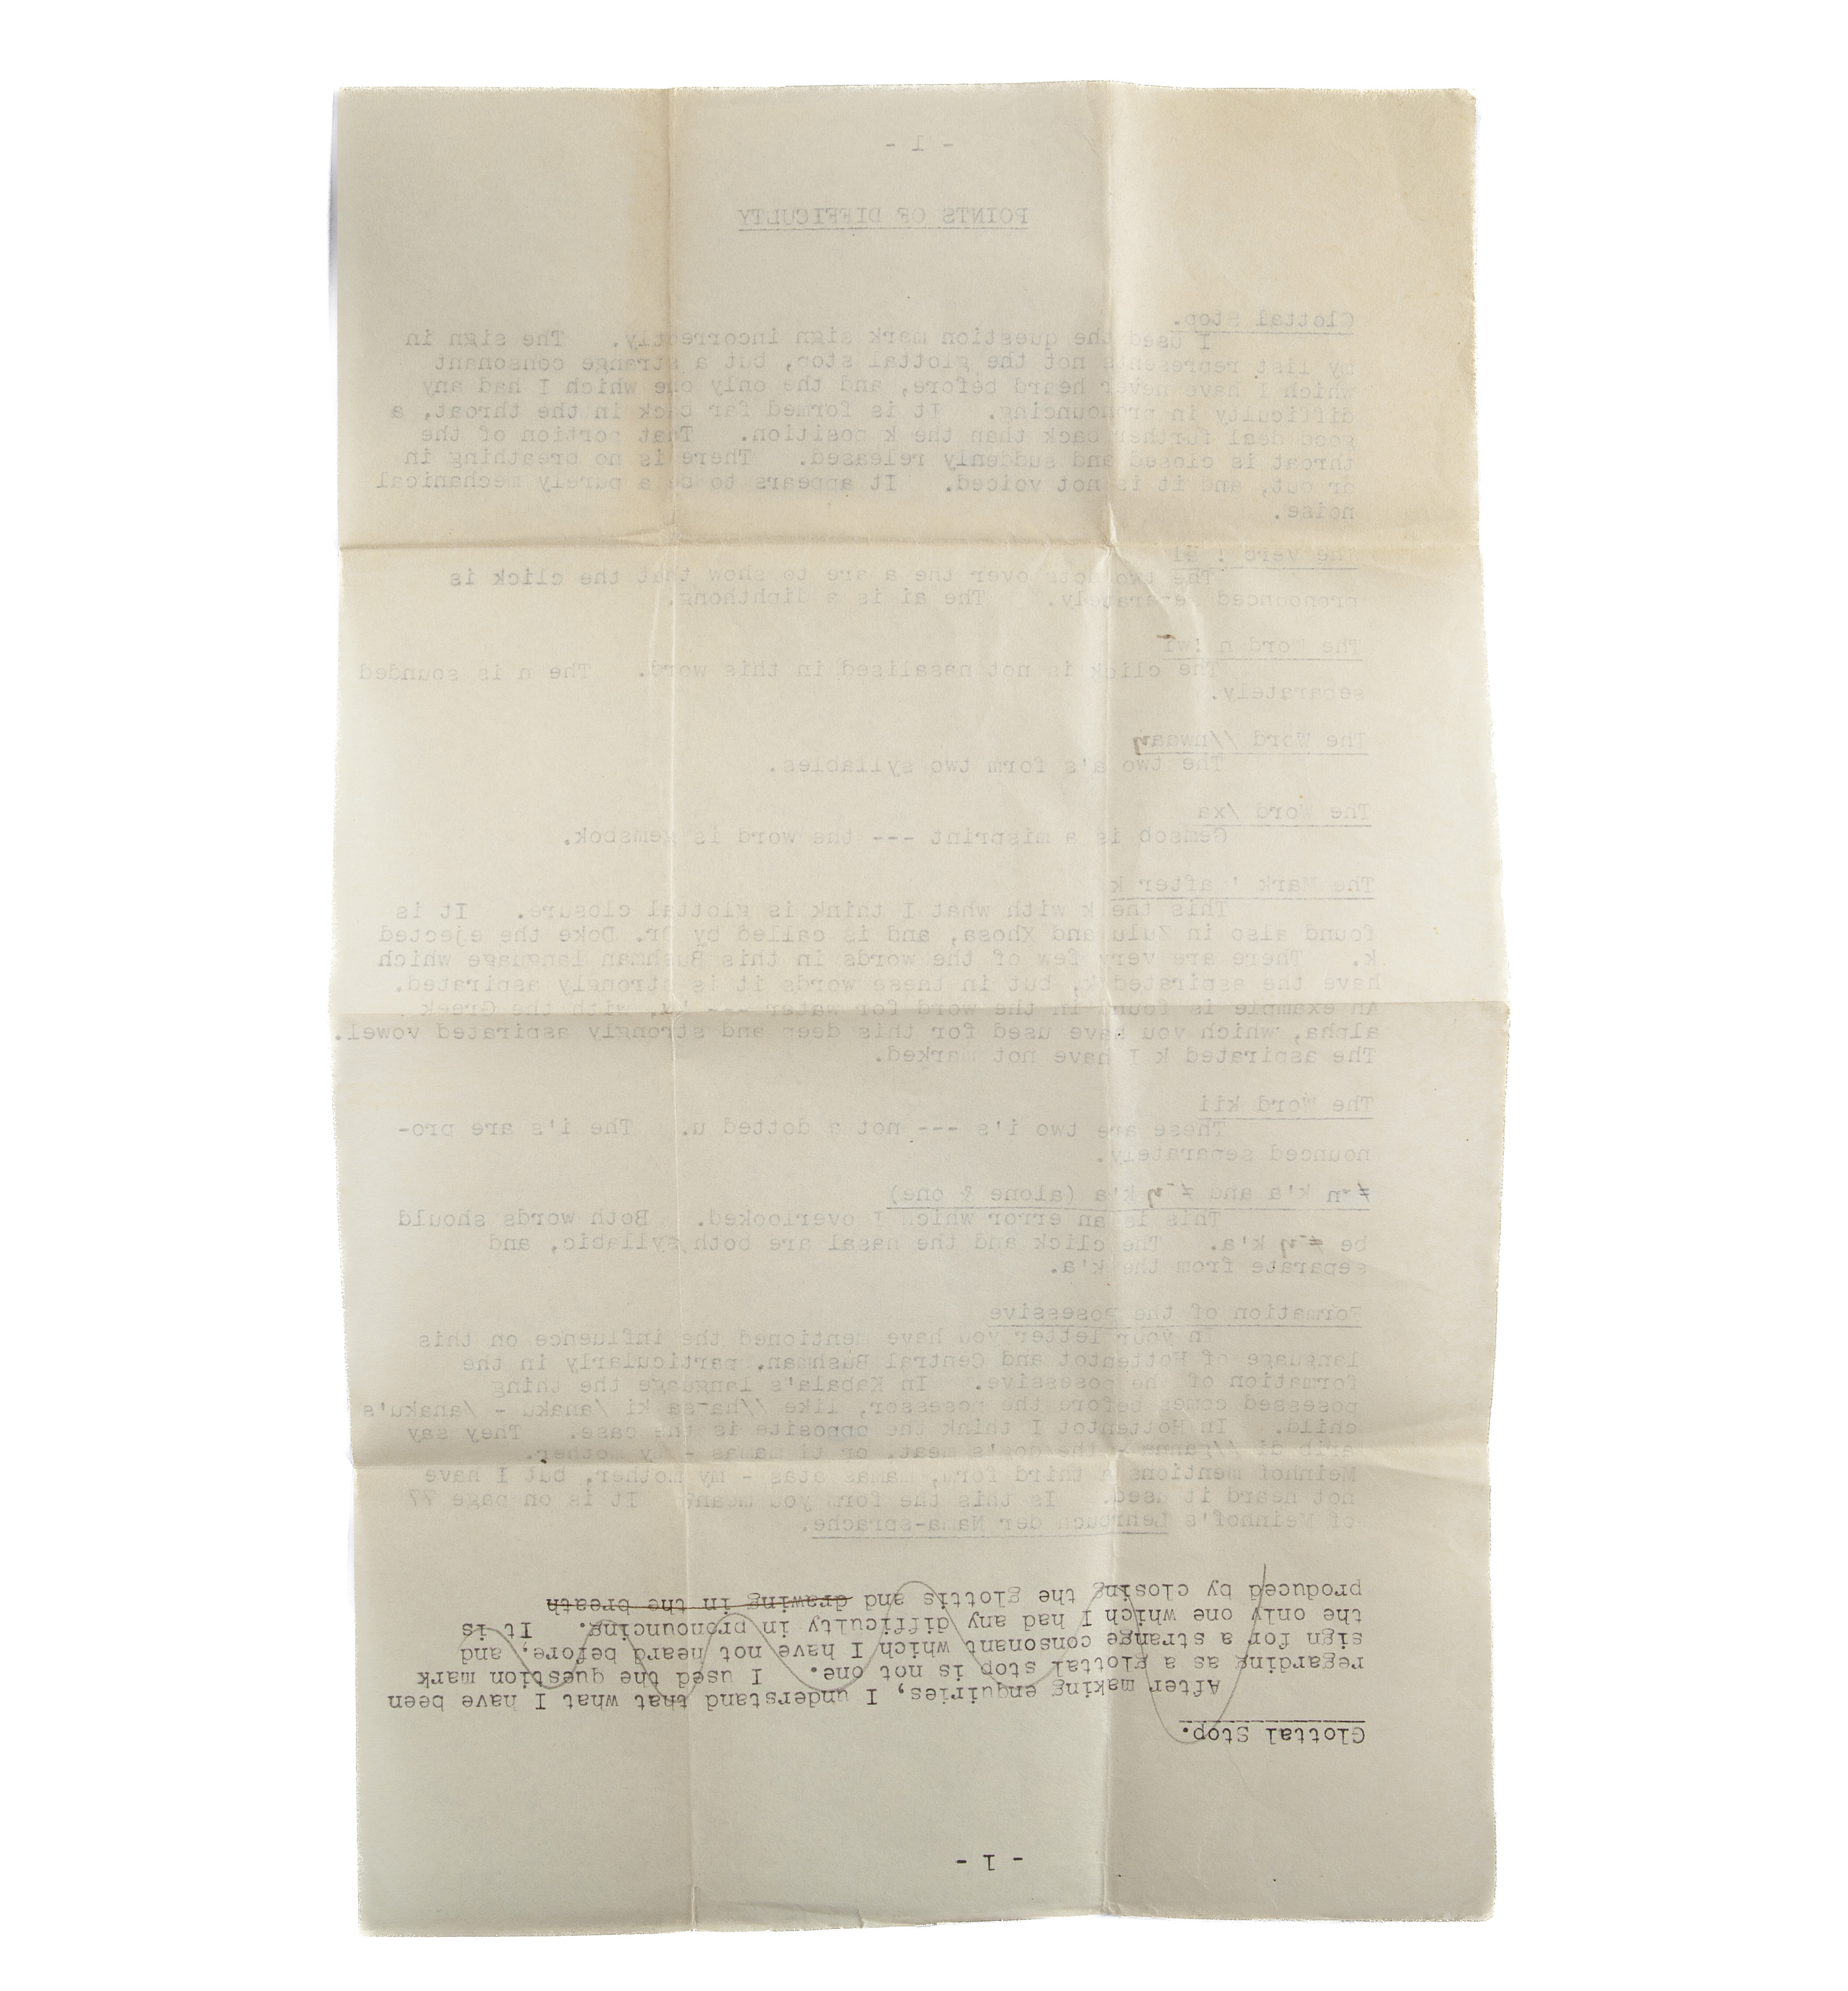 - 1 -
POINTS OF DIFFICULTY
Glottal Stop.
I used the question mark sign incorrectly. The sign in
my list represents not the glottal stop, but a strange consonant
which I have never heard before, and the only one which I had any
difficulty in pronouncing. It is formed far back in the throat, a
good deal further back than the k position. That portion of the
throat is closed and suddenly released. There is no breathing in
or out, and it is not voiced. It appears to be a purely mechanical
noise.
The verb ! äi
The two dots over the a are to show that the click is
pronounced separately. The ai is a diphthong.
The Word n !wi
The click is not nasalised in this word. The n is sounded
separately.
The Word //nwaaŋ
The two a's form two syllables.
The Word /xa
Gemsob is a misprint --- the word is gemsbok.
The Mark ' after k
This the k with what I think is glottal closure. It is
found also in Zulu and Xhosa, and is called by Dr. Doke the ejected
k. There are very few of the words in this Bushman language which
have the aspirated k, but in these words it is strongly aspirated.
An example is found in the word for water --- with the Greek
alpha, which you have used for this deep and strongly aspirated vowel.
The aspirated k I have not marked.
The Word kii
These are two i's --- not a dotted u. The i's are pro-
nounced separately.
≠-n k'a and ≠-ŋ k'a (alone & one)
This is an error which I overlooked. Both words should
be ≠-ŋ k'a. The click and the nasal are both syllabic, and
separate from the k'a.
Formation of the posessive
In your letter you have mentioned the influence on this
language of Hottentot and Central Bushman, particularly in the
formation of the posessive. In Kabala's language the thing
posessed comes before the posessor, like //ha-sa ki /anaku - /anaku's
child. In Hottentot I think the opposite is the case. They say
arib di //ganna - the dog's meat, or ti mamas - my mother.
Meinhof mentions a third form, mamas atas - my mother, but I have
not heard it used. Is this the form you mean? It is on page ??
of Meinhof's Lehrbuch der Nama-sprache.
- 1 -
Glottal Stop.
After making enquiries, I understand that what I have been
regarding as a glottal stop is not one. I used the question mark
sign for a strange consonant which I have not heard before, and
the only one which I had any difficulty in pronouncing. It is
produced by closing the glottis and drawing in the breath